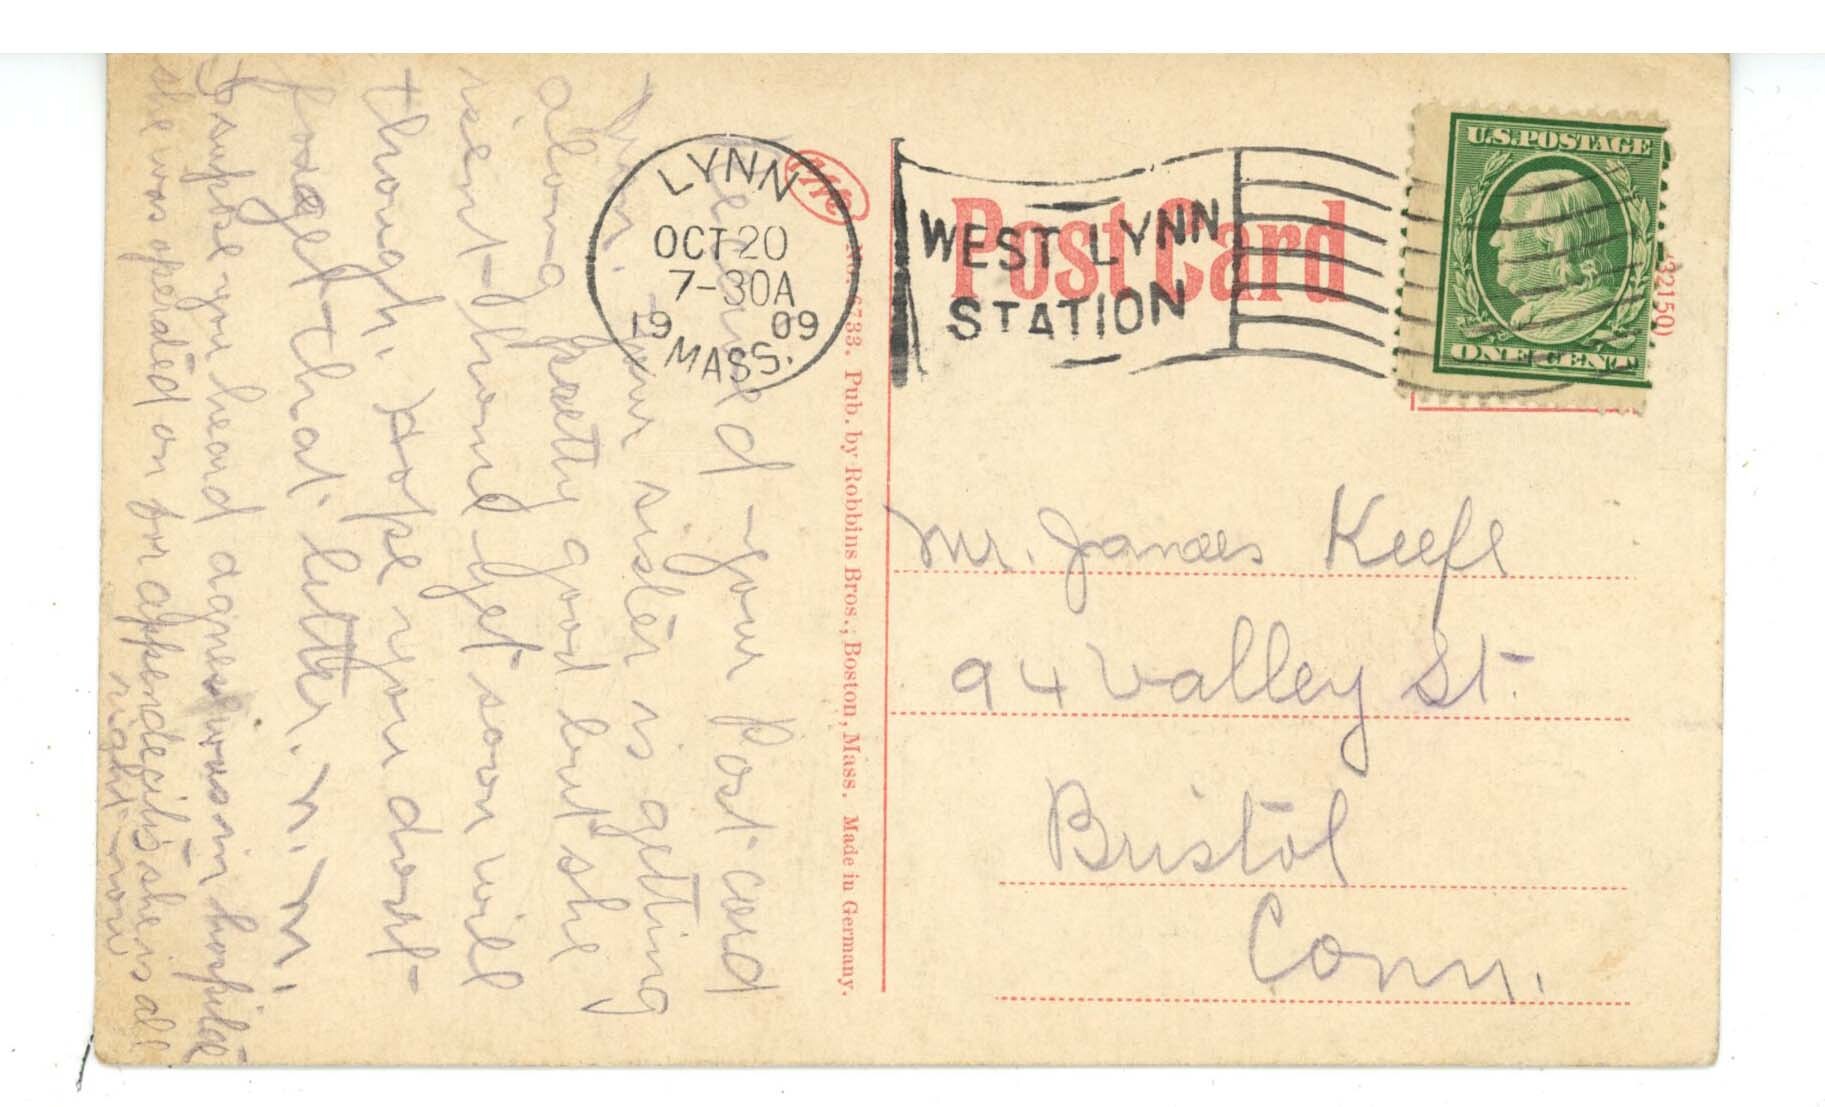 Received your Post card
your sister is getting
along pretty good but she
isent home yet soon will
though. Hope you dont
forget that letter. M. M.
I supose you heard agnes was in hospital
she was operated on for appendecitis she is all
right now
LYNN
OCT 20
7-30A
1909
MASS.
WEST LYNN
STATION
Post Card
U.S. POSTAGE
ONE CENT
32150)
No. 6733. Pub. by Robbins Bros., Boston, Mass. Made in Germany.
Mr. James Keefe
94 Valley St.
Bristol
Conn.